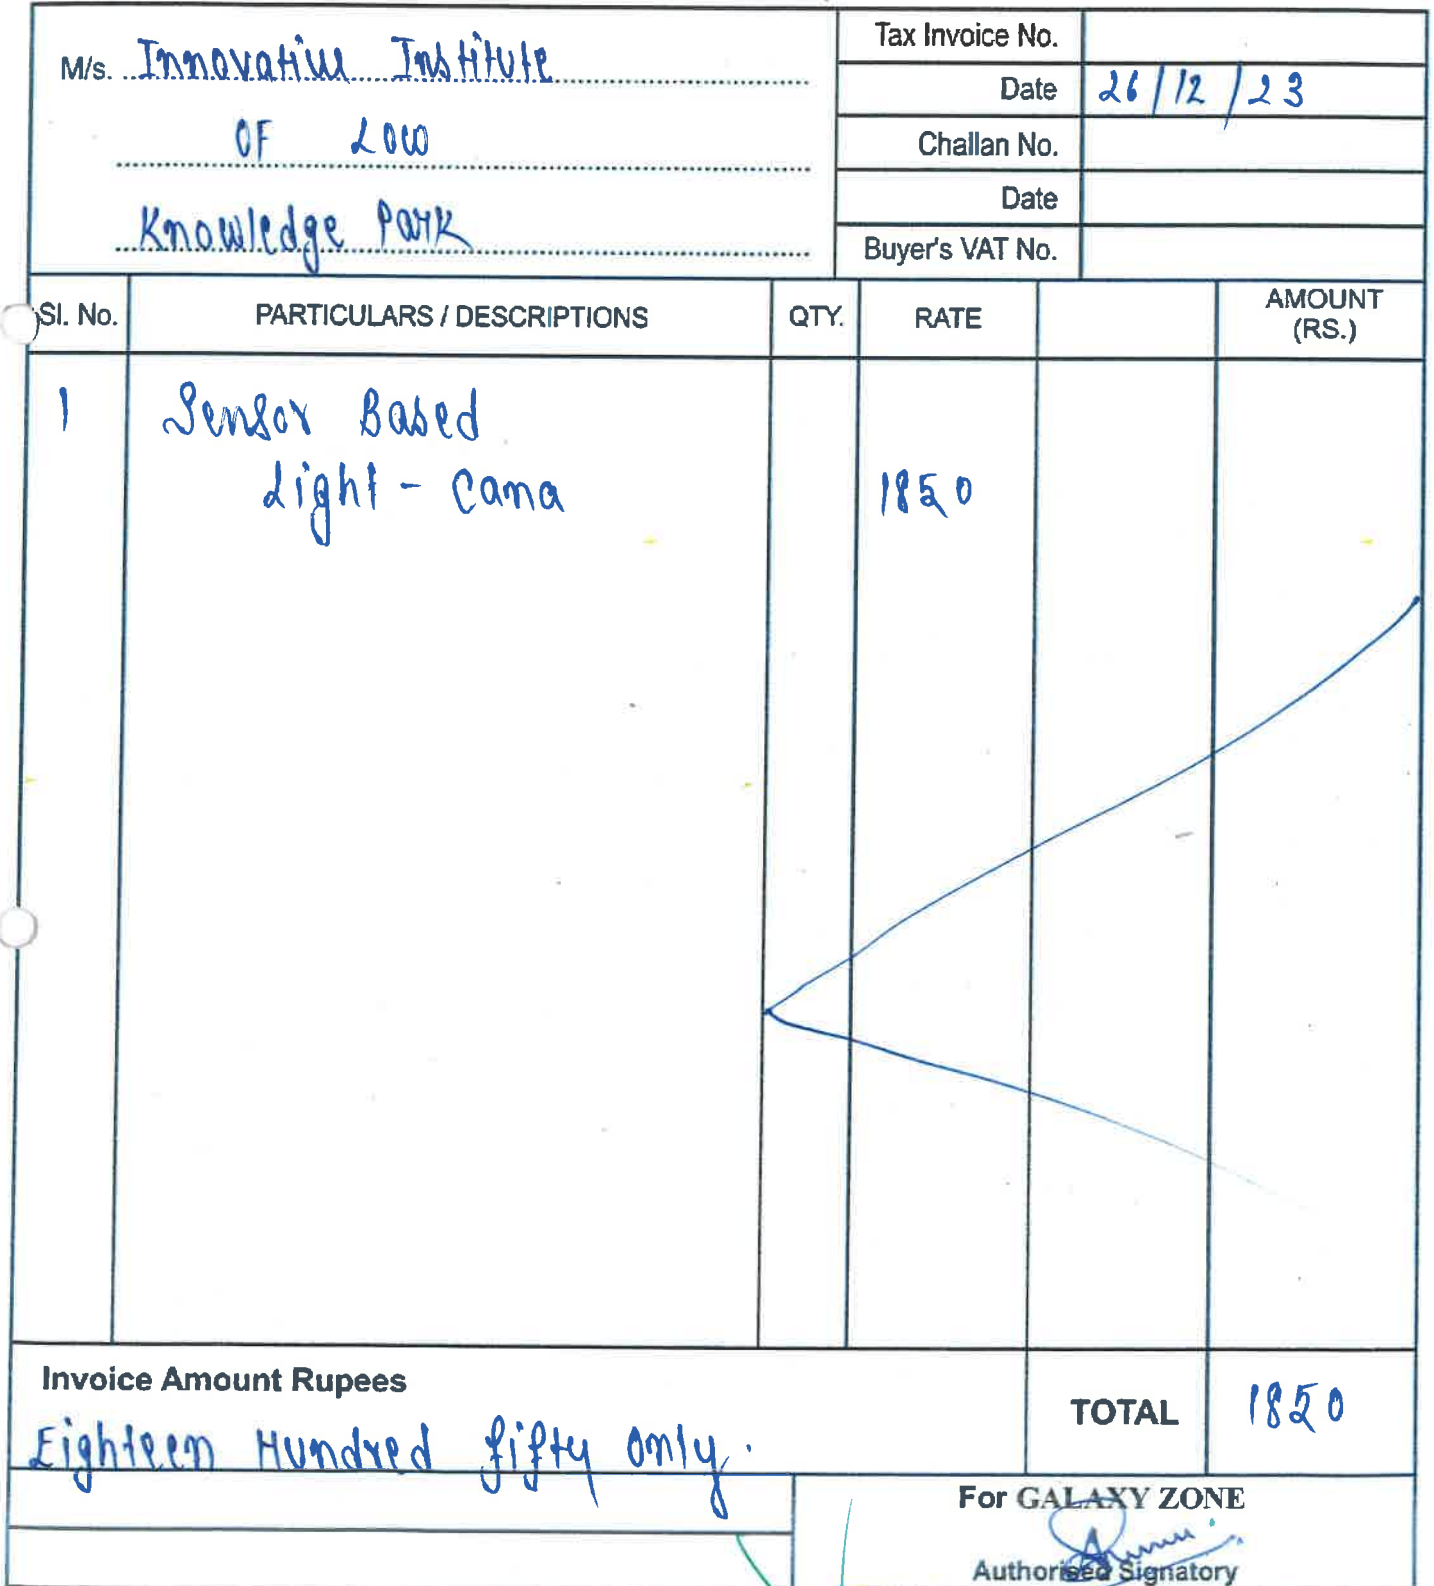 M/s. Innovative Institute
OF Law
Knowledge Park
Tax Invoice No.
Date 26/12/23
Challan No.
Date
Buyer's VAT No.
Sl. No. PARTICULARS / DESCRIPTIONS QTY. RATE AMOUNT (RS.)
1 Sensor Based
Light - Cama 1850
Invoice Amount Rupees
Eighteen Hundred fifty only.
TOTAL 1850
For GALAXY ZONE
Authorised Signatory